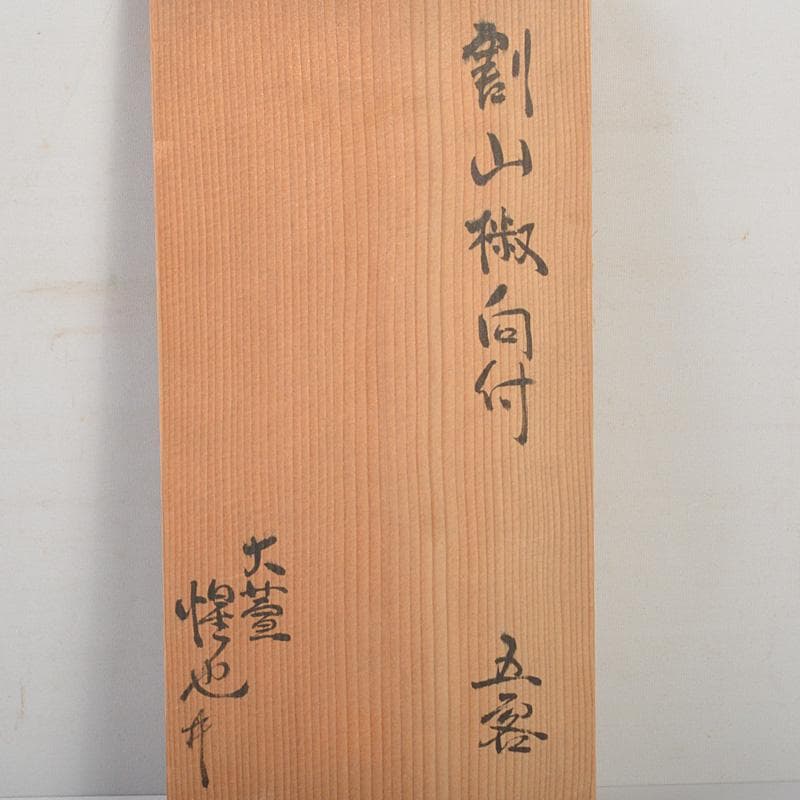 割山椒向付
五客
大萱
惺也